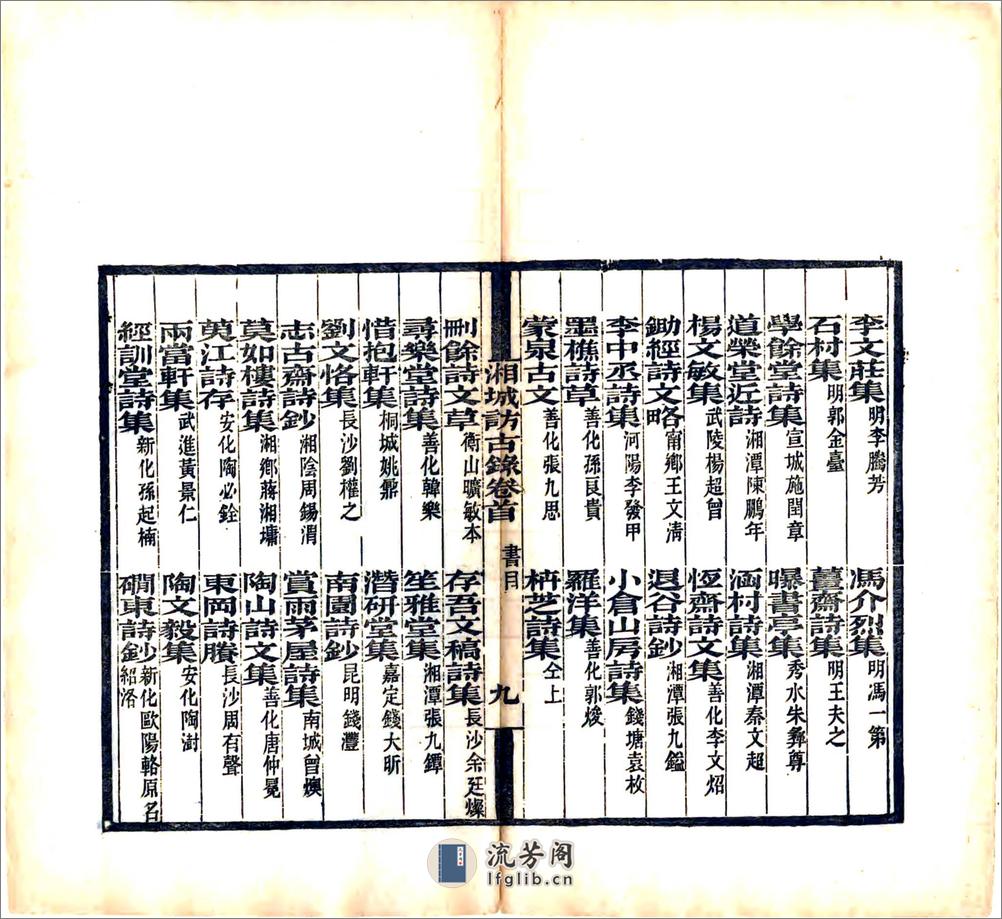 李文莊集 明李騰芳 馮介烈集 明馮一第
石村集 明郭金臺 薑齋詩集 明王夫之
學餘堂詩集 宣城施閏章 曝書亭集 秀水朱彝尊
道榮堂近詩 湘潭陳鵬年 涵村詩集 湘潭秦文超
楊文敏集 武陵楊超曾 恆齋詩文集 善化李文炤
鋤經詩文略 甯鄉王文清 退谷詩鈔 湘潭張九鎰
李中丞詩集 河陽李發甲 小倉山房詩集 錢塘袁枚
墨樵詩草 善化孫良貴 羅洋集 善化郭焌
蒙泉古文 善化張九思 枬芝詩集 仝上
湘城訪古錄卷首 書目 九
刪餘詩文草 衡山曠敏本 存吾文稿詩集 長沙余廷燦
尋樂堂詩集 善化韓樂 笙雅堂集 湘潭張九鐔
惜抱軒集 桐城姚鼐 潛研堂集 嘉定錢大昕
劉文恪集 長沙劉權之 南園詩鈔 昆明錢灃
志古齋詩鈔 湘陰周錫渭 賞雨茅屋詩集 南城曾燠
莫如樓詩集 湘鄉蔣湘墉 陶山詩文集 善化唐仲冕
萸江詩存 安化陶必銓 東岡詩賸 長沙周有聲
兩當軒集 武進黃景仁 陶文毅集 安化陶澍
經訓堂詩集 新化孫起楠 磵東詩鈔 新化歐陽輅原名紹洛
流芳阁
lfglib.cn